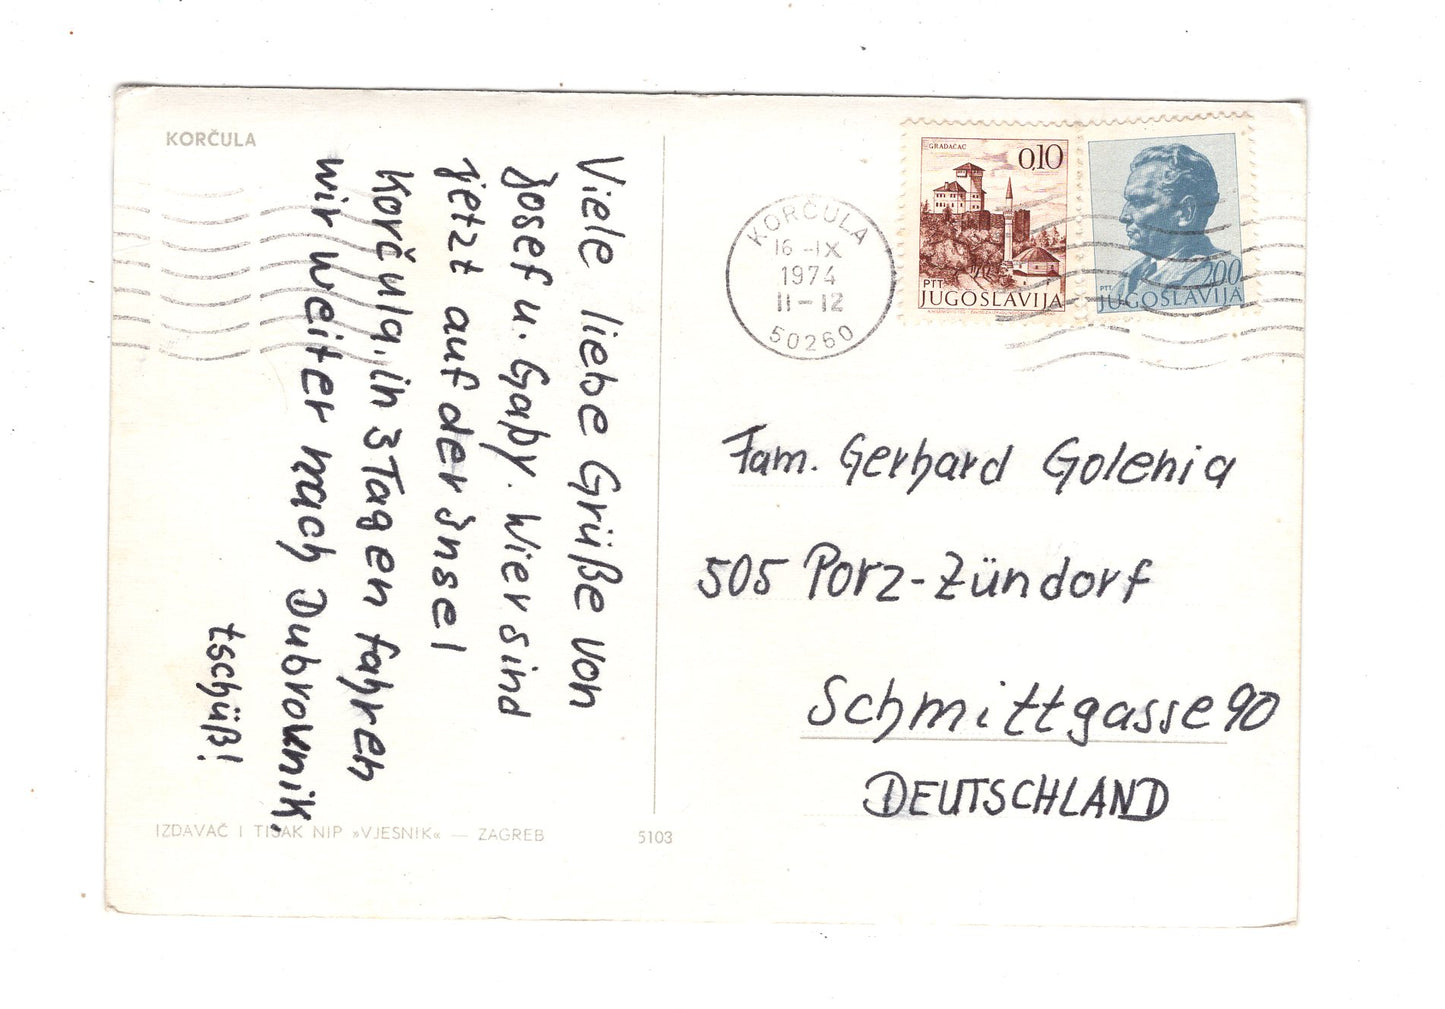 KORČULA
Viele liebe Grüße von
Josef u. Gaby. Wier sind
jetzt auf der Insel
Korčula, in 3 Tagen fahren
wir weiter nach Dubrovnik,
tschüß!
IZDAVAČ I TISAK NIP »VJESNIK« — ZAGREB
5103
KORČULA
16-IX
1974
11-12
50260
GRADAČAC
0,10
PTT
JUGOSLAVIJA
2,00
PTT
JUGOSLAVIJA
Fam. Gerhard Golenia
505 Porz-Zündorf
Schmittgasse 90
DEUTSCHLAND